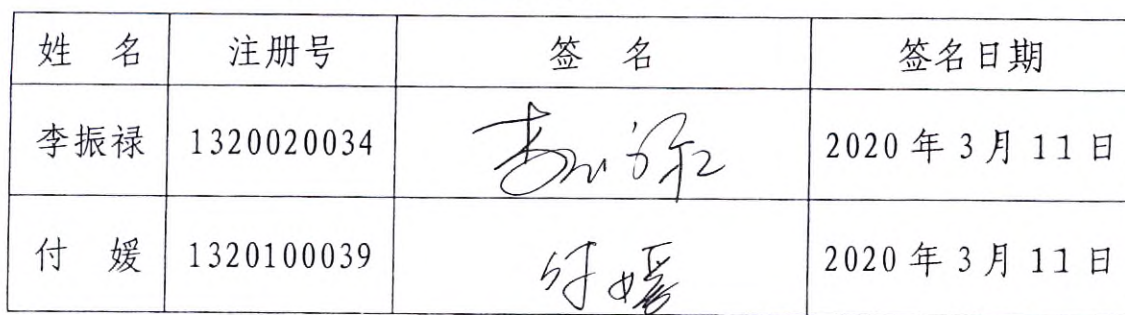 姓 名 注册号 签 名 签名日期
李振禄 1320020034 2020年3月11日
付 媛 1320100039 付媛 2020年3月11日